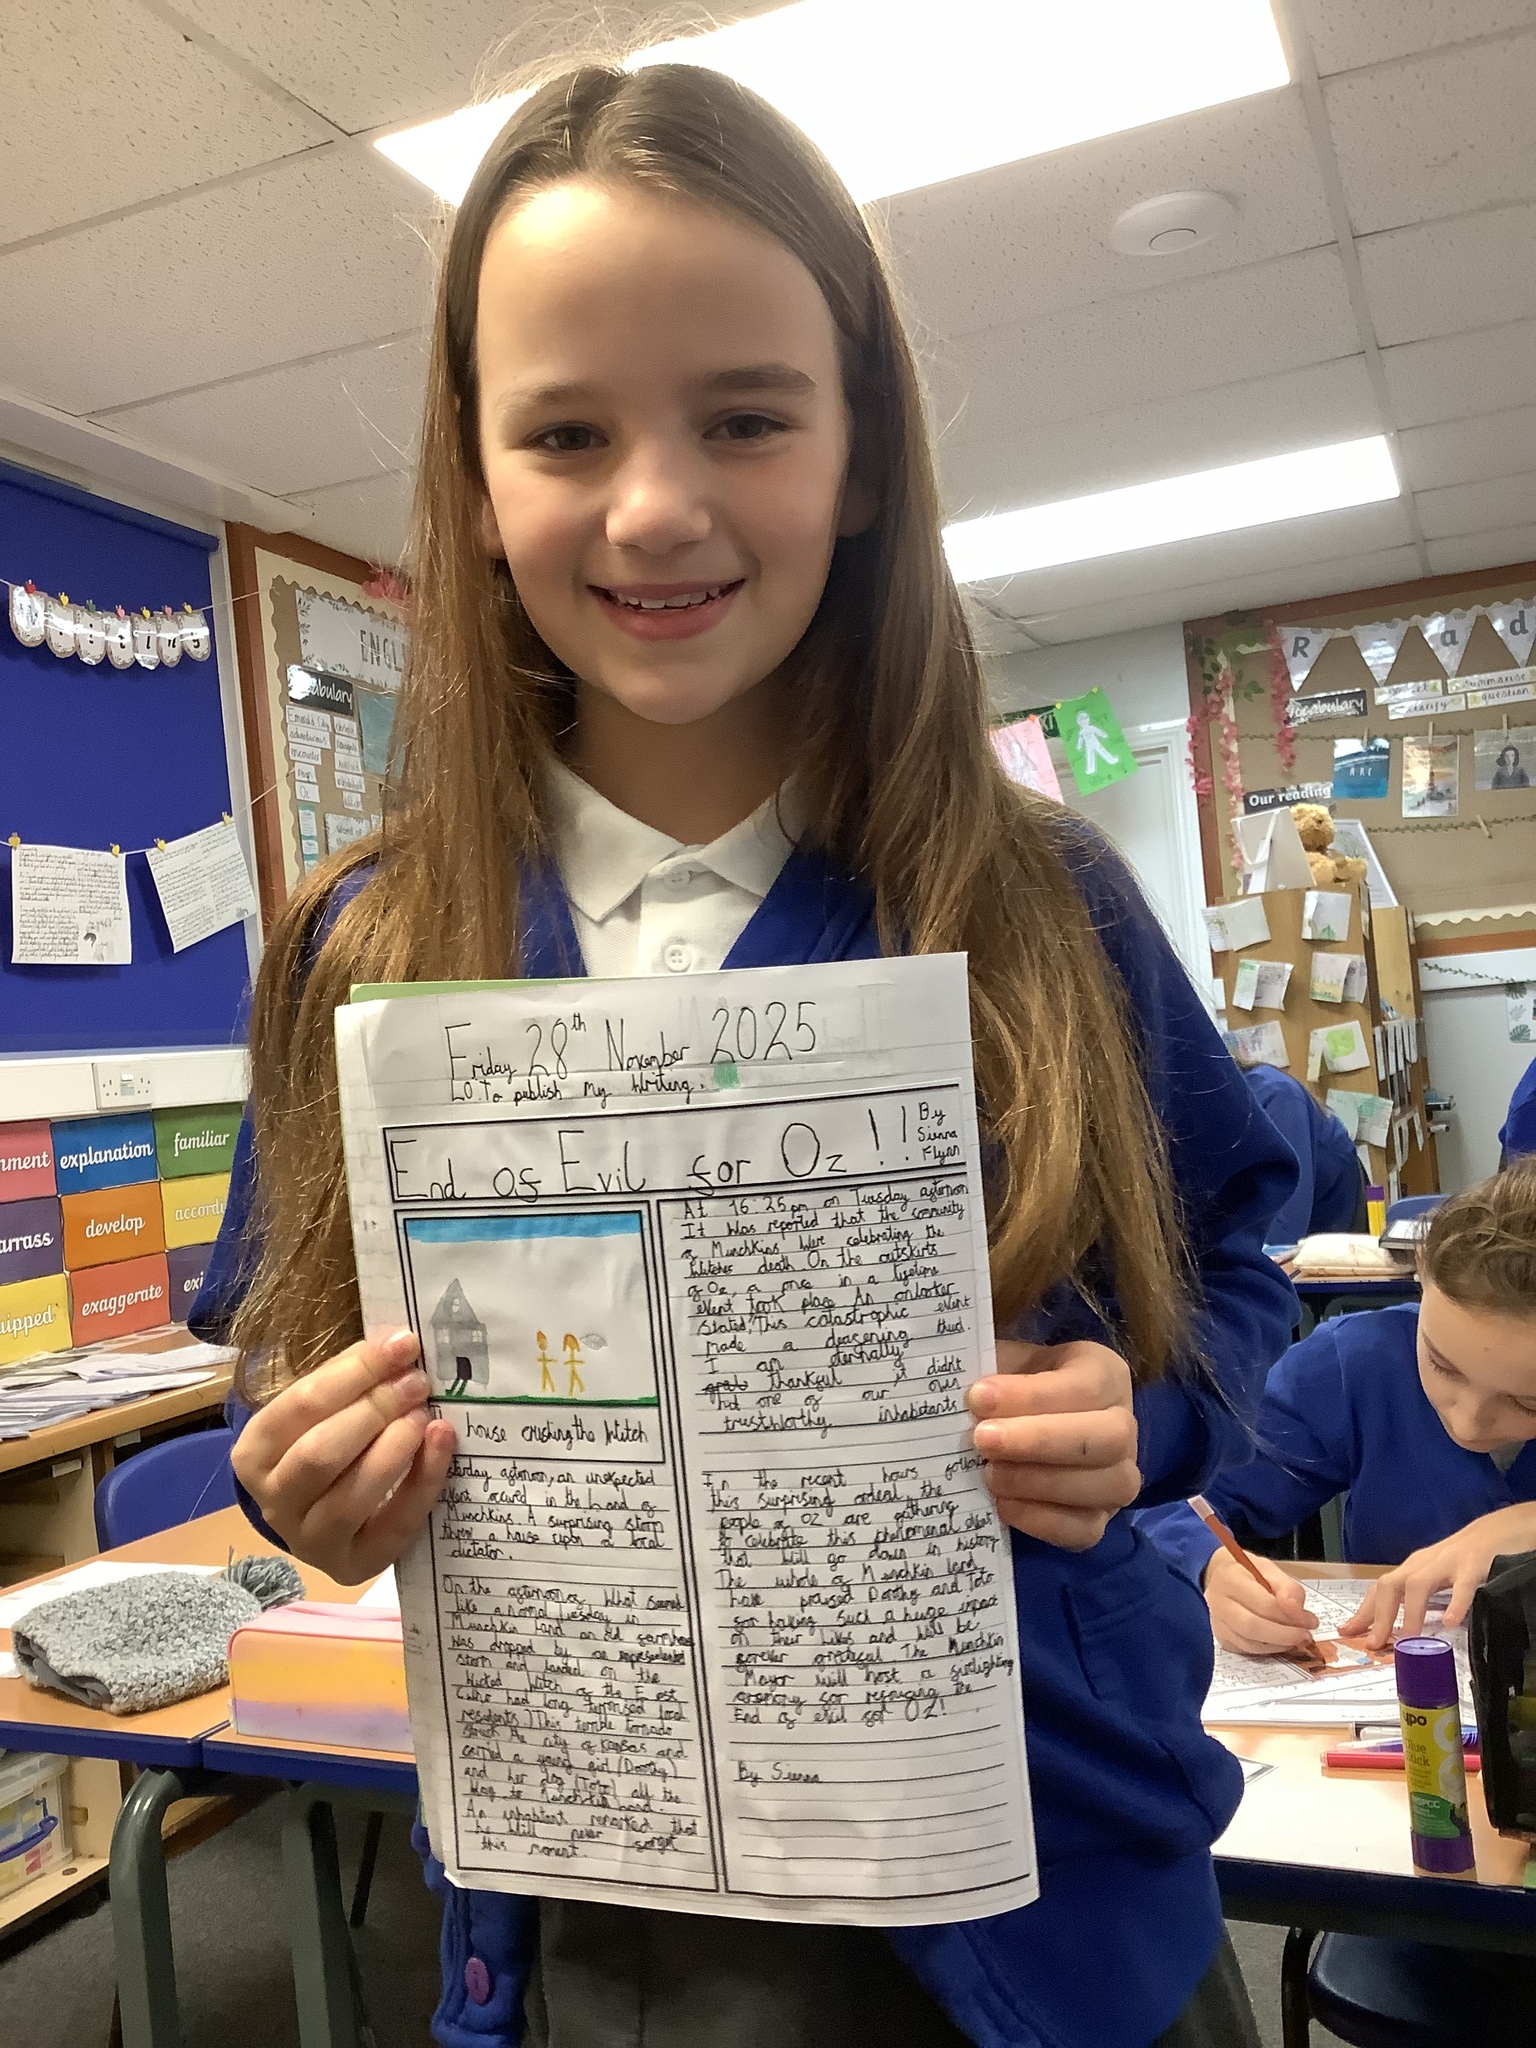 Friday 28th November 2025
LO: To publish my writing.
End of Evil for Oz!!
By
Sienna
Flynn
house crushing the Witch
sterday afternoon, an unexpected
event occured in the Land of
Munchkins. A surprising storm
threw a house upon a local
dictator.
On the afternoon of what seemed
like a normal Tuesday in
Munchkin Land an old farmhouse
was dropped by
storm and landed on the
Wicked Witch of the East
(who had long terrorised local
residents.) This terrible tornado
struck the city of Kansas and
carried a young girl (Dorothy)
and her dog (Toto) all the
way to Munchkin Land.
An inhabitant remarked that
he will never forget
this moment.
At 16:25pm on Tuesday afternoon
It was reported that the community
of Munchkins were celebrating the
Witches death. On the outskirts
of Oz, a once in a lifetime
event took place. An onlooker
stated, "This catastrophic event
made a deafening thud.
I am eternally
thankful it didn't
hit one of our own
trustworthy inhabitants
In the recent hours following
this surprising ordeal, the
people of OZ are gathering
to celebrate this phenomenal event
that will go down in history
The whole of Munchkin Land
have praised Dorothy and Toto
for having such a huge impact
on their lives and will be
forever grateful. The Munchkin
Mayor will host a
ceremony for rejoycing the
End of evil for OZ!
By Sienna
ENGL
Vocabulary
Emerald City
adventurous
encounter
Oz
Word of
R a d
Vocabulary
summarise
clarify
question
Our reading
nment
explanation
familiar
arrass
develop
accord
uipped
exaggerate
exi